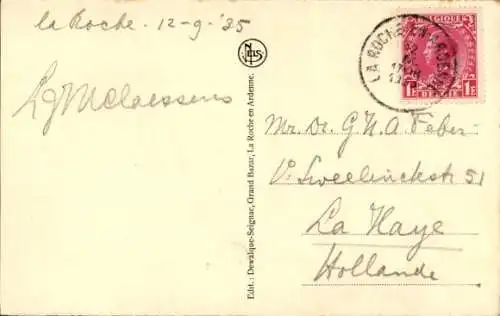 la Roche - 12-9-'35
LJMClaessens
NELS
Edit.: Dewalque-Seignac, Grand Bazar, La Roche en Ardenne.
BELGIQUE
LA ROCHE EN ARDENNE
1F 1F
Mr. Dr. G.H.A. Faber
v. Sweelinckstr 51
La Haye
Hollande